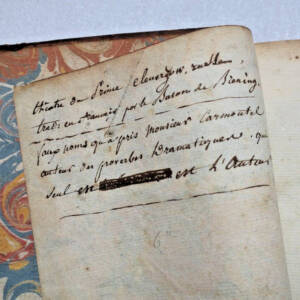 théatre du Prince clenerzow, russe,
en francais par le Baron de Biening,
faux noms qu'a pris monsieur Carmontel
auteur des proverbes Dramatiques, qui
seul est est l'auteur
6